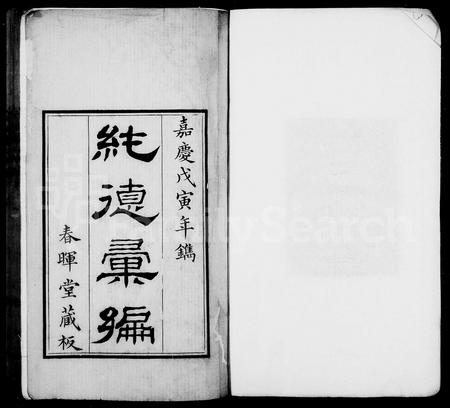 嘉慶戊寅年鐫
純德彙編
春暉堂藏板
FamilySearch